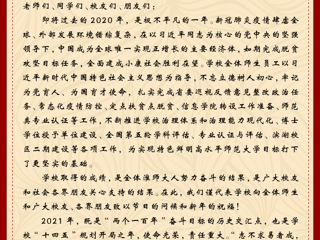 老师们、同学们、校友们、朋友们：
即将过去的2020年，是极不平凡的一年。新冠肺炎疫情肆虐全
球、外部发展环境错综复杂，在以习近平同志为核心的党中央的坚强
领导下，中国成为全球唯一实现正增长的主要经济体，如期完成脱贫
攻坚目标任务，全面建成小康社会胜利在望。学校全体师生员工以习
近平新时代中国特色社会主义思想为指导，不忘立德树人初心，牢记
为党育人、为国育才使命，扎实完成省委巡视反馈意见整改政治任
务、常态化疫情防控、定点扶贫点脱贫、信息学院转设工作准备、师范
类专业认证等工作，不断推进学校治理体系和治理能力现代化，博士
学位授予单位建设、全国第五轮学科评估、专业认证与评估、滨湖校
区二期建设等各项工作，为实现特色鲜明高水平师范大学目标打下
了更坚实的基础。
学校取得的成绩，是全体淮师大人努力奋斗的结果，是广大校
友和社会各界朋友关心支持的结果。在此，我们谨代表学校向全体师生
和广大校友、各界朋友致以节日的问候和新年的祝福！
2021年，既是“两个一百年”奋斗目标的历史交汇点，也是学
校“十四五”规划开局之年，使命光荣，责任重大。“志不求易者成，